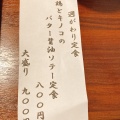 週がわり定食
鶏とキノコの
バター醤油ソテー定食
八〇〇円
大盛り 九〇〇